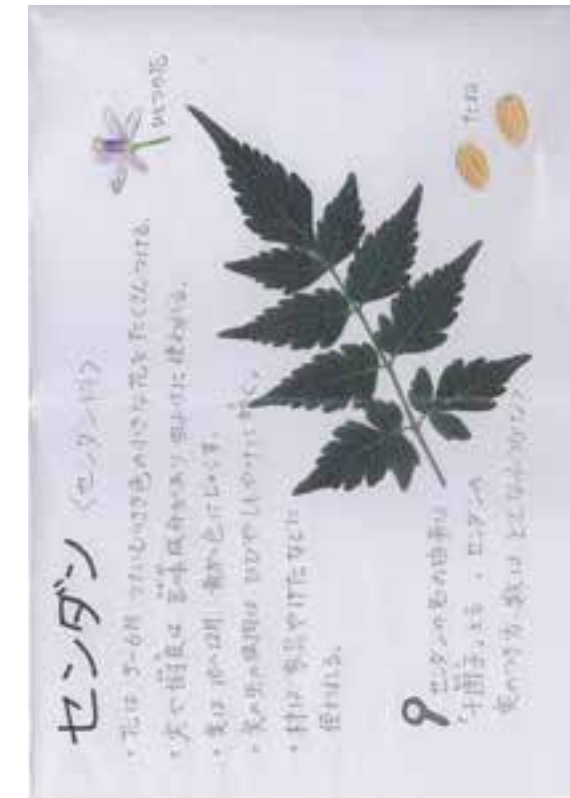 センダン 〈センダン科〉
・花は 5~6月 うすむらさき色の小さな花をたくさんつける。
・実や樹皮は 苦味成分があり 虫よけに使われる。
・実は 10~12月 黄かっ色にじゅくす。
・実の生の果肉は ひびやしもやけに効く。
・材は 家具やげたなどに
使われる。
センダンの名の由来は
「千団子」という。センダンの
実のつき方、数は どんなかな?
ひとつの花
たね